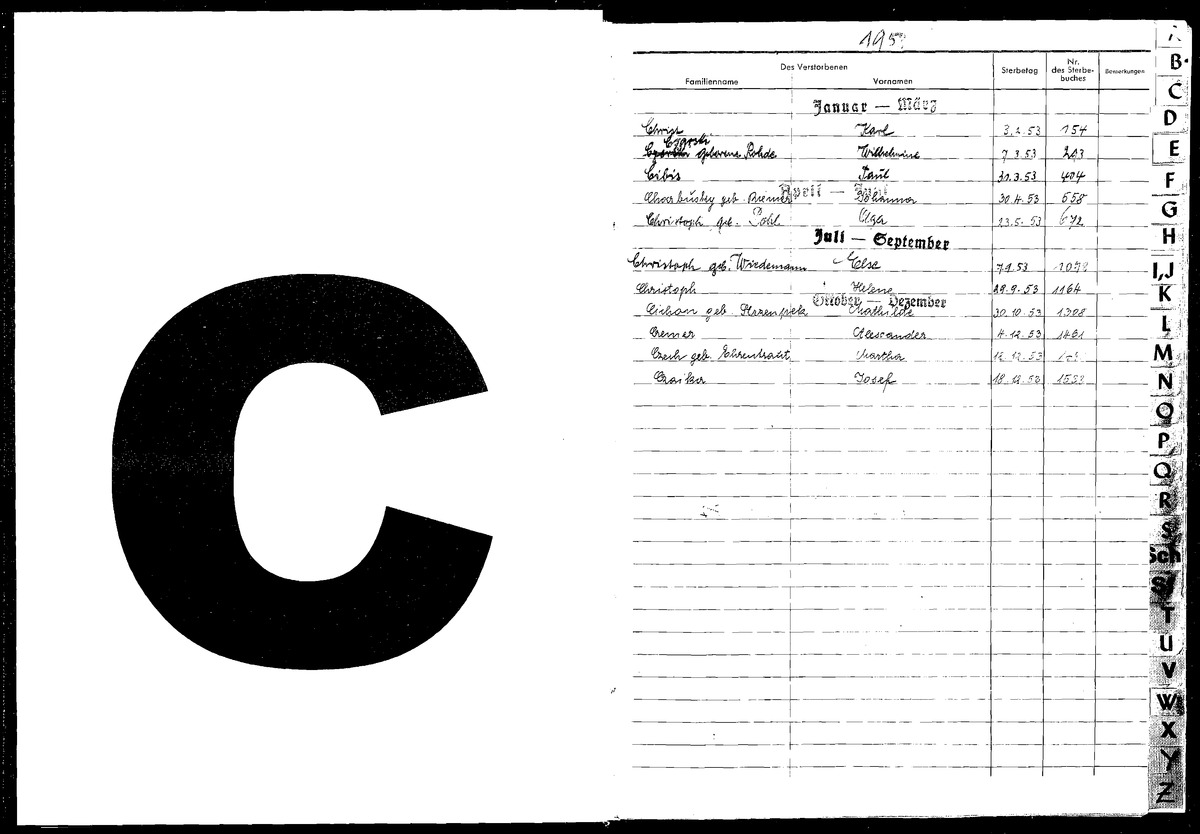 C
1953
Des Verstorbenen
Familienname Vornamen Sterbetag Nr. des Sterbe-buches Bemerkungen
Januar — März
Christ Karl 3.2.53 154
Cygorski geborene Rohde Wilhelmine 7.3.53 203
Cibis Paul 31.3.53 404
April — Juni
geb. Riemer Johanna 30.4.53 558
Christoph geb. Pohl Olga 23.5.53 672
Juli — September
Christoph geb. Wiedemann Else 53
Christoph Helene 29.9.53 1164
Oktober — Dezember
Cichon geb. Mathilde 30.10.53 1308
Cremer Alexander 4.12.53 1461
Czech geb. Ehrentraut Martha 12.12.53
Czaika Josef 18.12.53 1533
A
B
C
D
E
F
G
H
I,J
K
L
M
N
O
P
Q
R
S
Sch
St
T
U
V
W
X
Y
Z